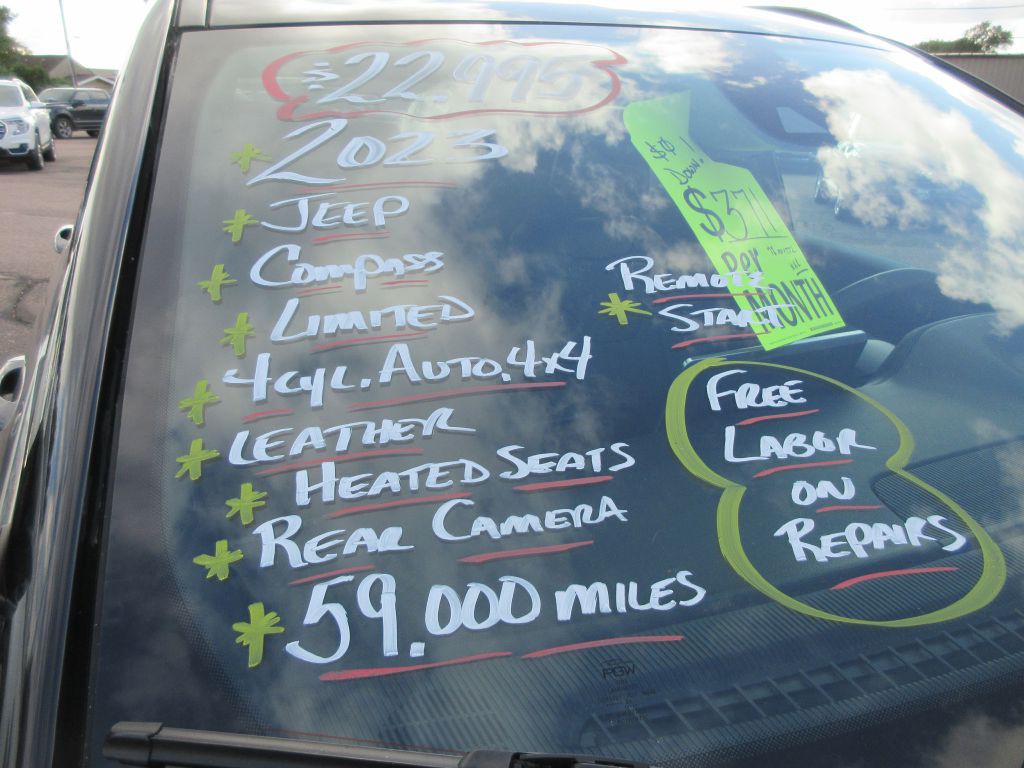 $22.995
* 2023
* JEEP
* COMPASS
* LIMITED
* 4CYL. AUTO. 4x4
* LEATHER
* HEATED SEATS
* REAR CAMERA
* 59.000 MILES
* REMOTE
START
$0
DOWN.
$371
PER
MONTH
FREE
LABOR
ON
REPAIRS
PGW